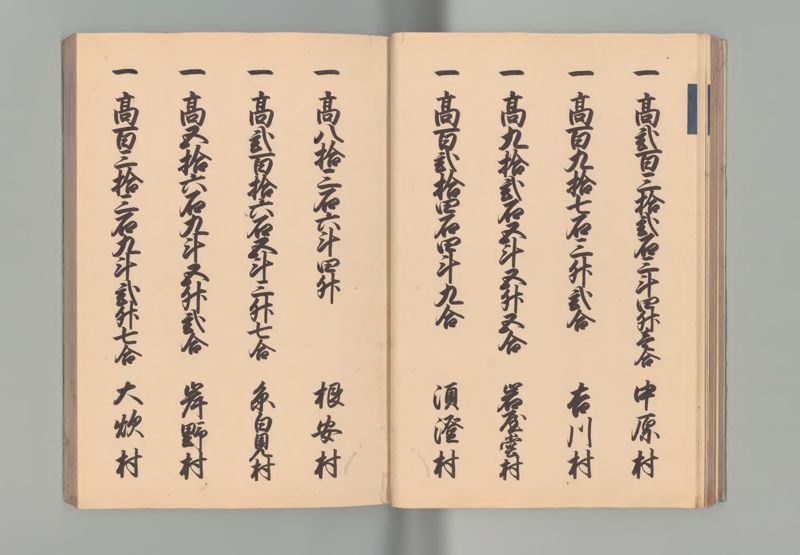 一 高弐百三拾弐石三斗四升壱合 中原村
一 高百九拾七石三升弐合 吉川村
一 高九拾弐石五斗五升五合 岩屋雲村
一 高百弐拾四石四斗九合 須澄村
一 高八拾三石六斗四升 根安村
一 高弐百拾六石五斗三升七合 糸白見村
一 高五拾六石九斗五升弐合 岸野村
一 高百三拾三石九斗弐升七合 大炊村